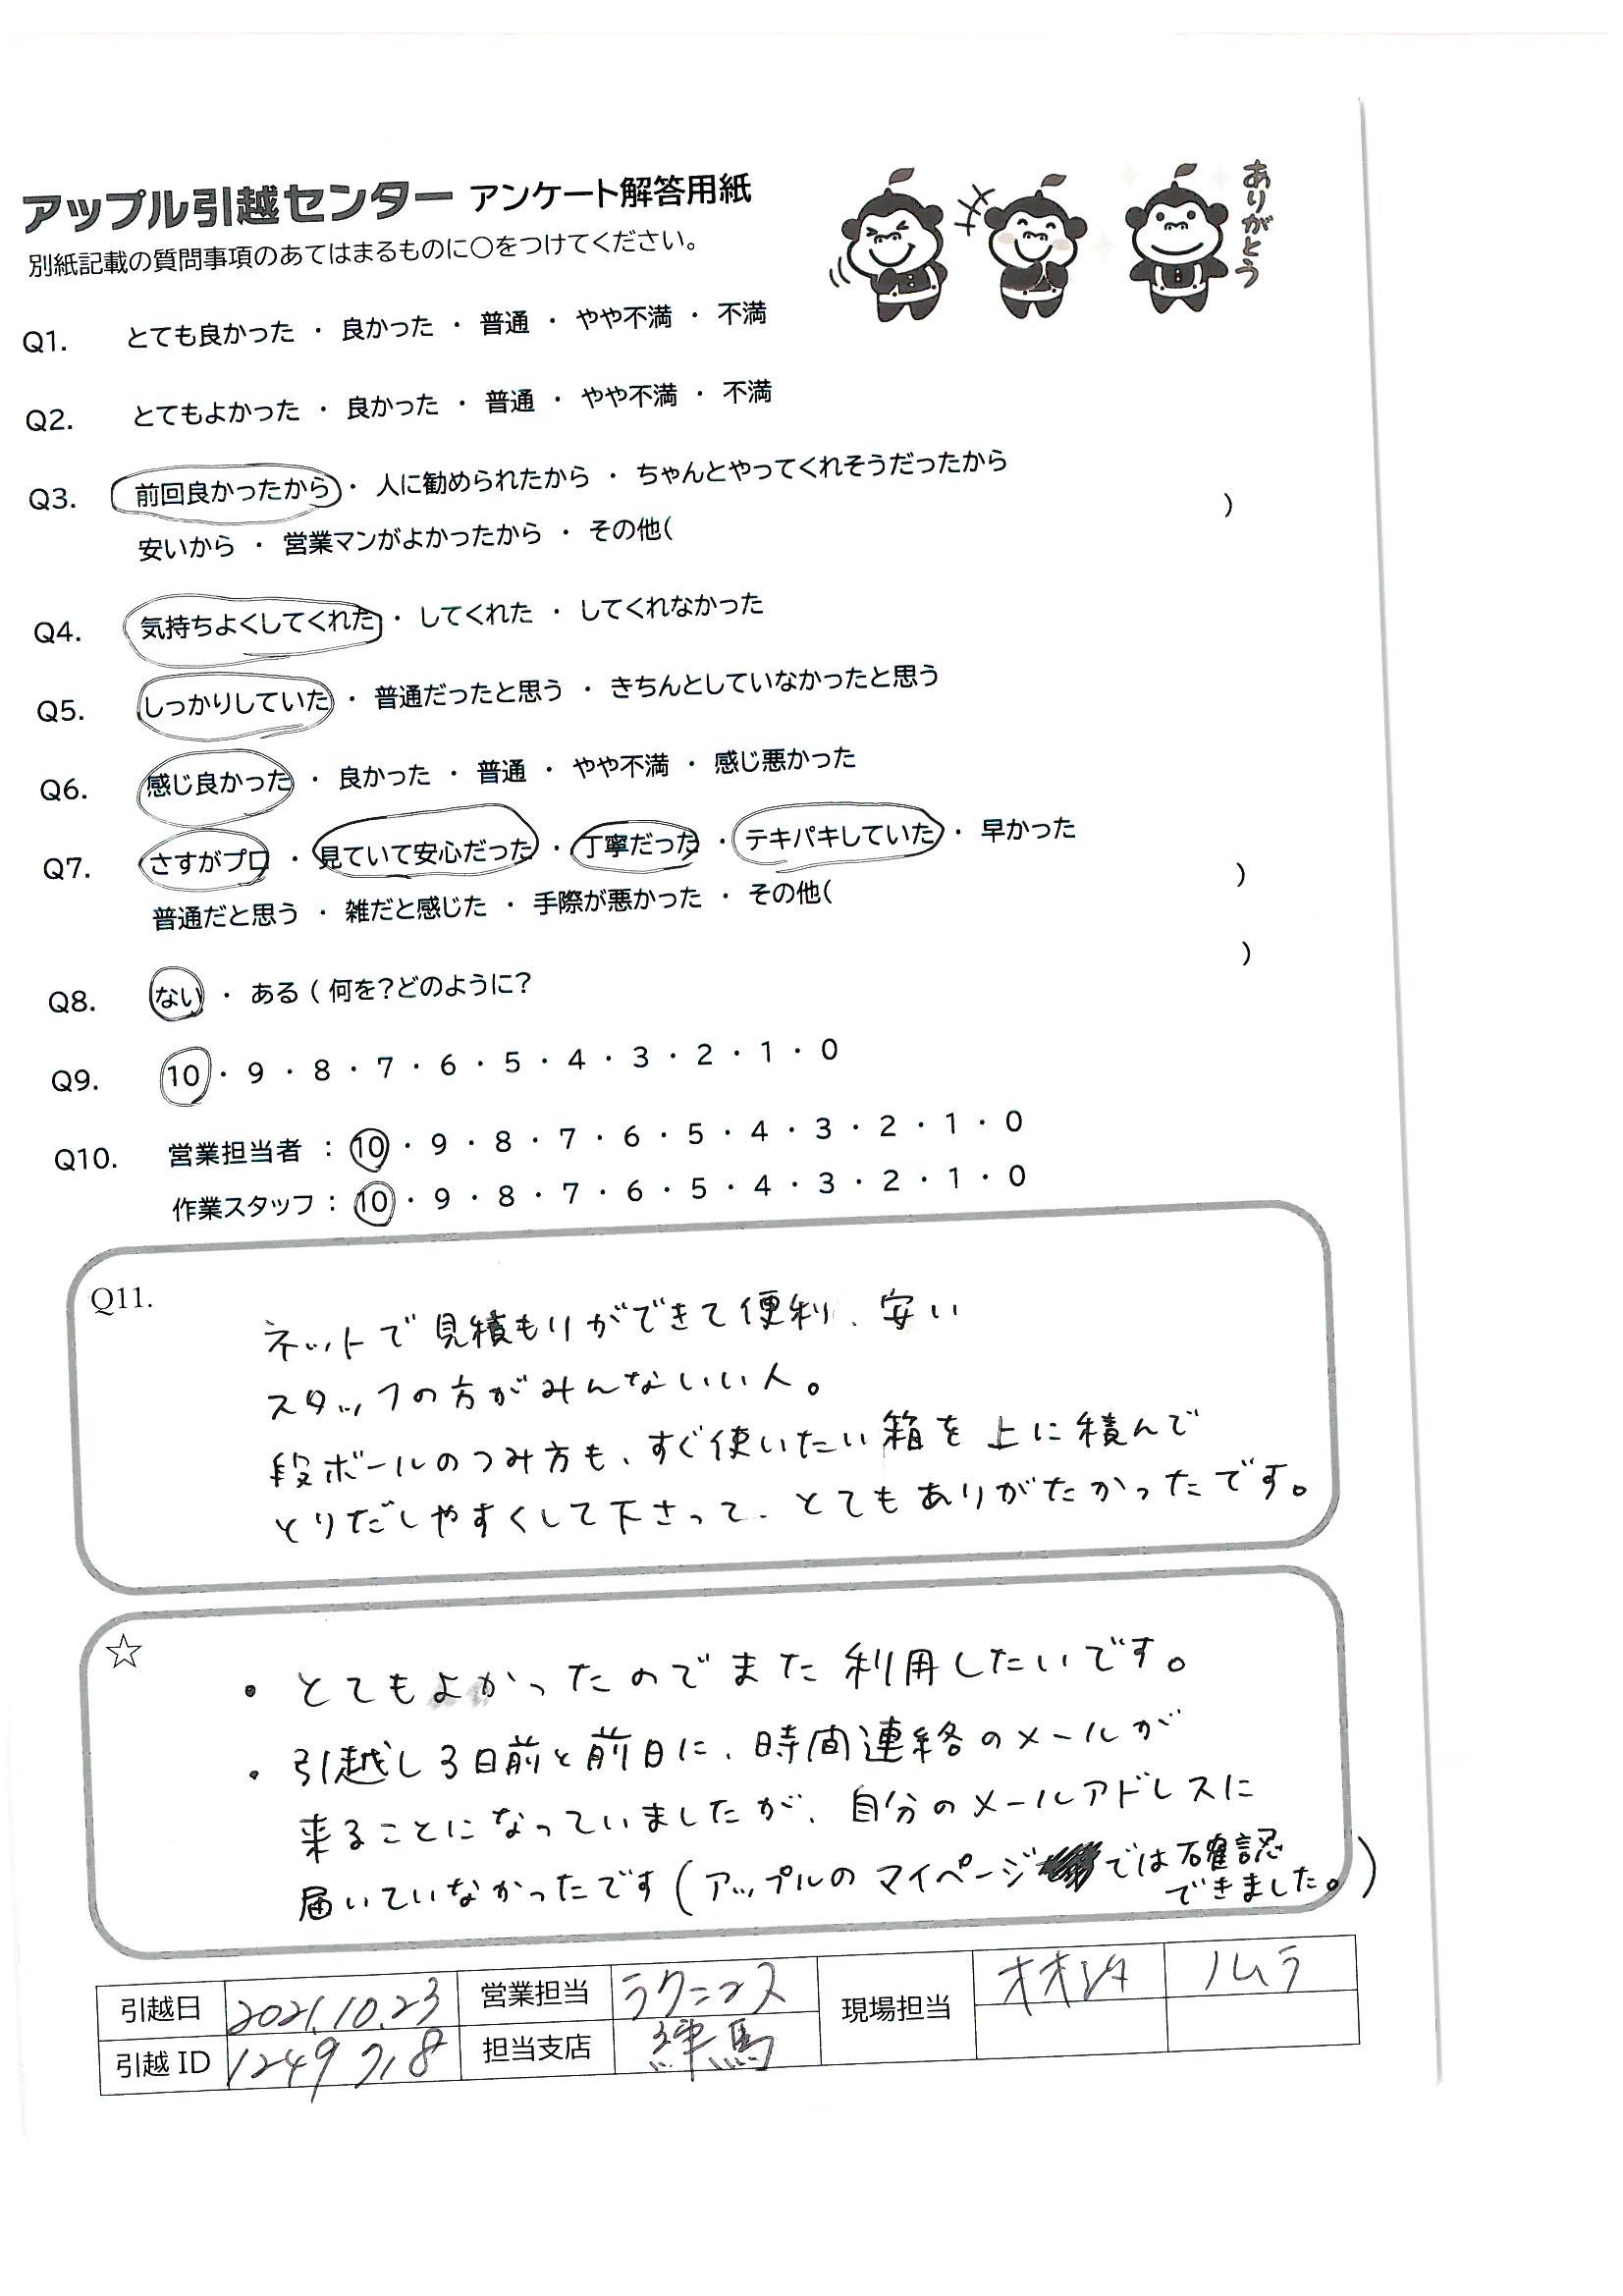 アップル引越センター アンケート解答用紙
ありがとう
別紙記載の質問事項のあてはまるものに○をつけてください。
Q1. とても良かった ・ 良かった ・ 普通 ・ やや不満 ・ 不満
Q2. とてもよかった ・ 良かった ・ 普通 ・ やや不満 ・ 不満
Q3. 前回良かったから ・ 人に勧められたから ・ ちゃんとやってくれそうだったから
安いから ・ 営業マンがよかったから ・ その他( )
Q4. 気持ちよくしてくれた ・ してくれた ・ してくれなかった
Q5. しっかりしていた ・ 普通だったと思う ・ きちんとしていなかったと思う
Q6. 感じ良かった ・ 良かった ・ 普通 ・ やや不満 ・ 感じ悪かった
Q7. さすがプロ ・ 見ていて安心だった ・ 丁寧だった ・ テキパキしていた ・ 早かった
普通だと思う ・ 雑だと感じた ・ 手際が悪かった ・ その他( )
Q8. ない ・ ある ( 何を?どのように? )
Q9. 10 ・ 9 ・ 8 ・ 7 ・ 6 ・ 5 ・ 4 ・ 3 ・ 2 ・ 1 ・ 0
Q10. 営業担当者 : 10 ・ 9 ・ 8 ・ 7 ・ 6 ・ 5 ・ 4 ・ 3 ・ 2 ・ 1 ・ 0
作業スタッフ : 10 ・ 9 ・ 8 ・ 7 ・ 6 ・ 5 ・ 4 ・ 3 ・ 2 ・ 1 ・ 0
Q11.
ネットで見積もりができて便利、安い
スタッフの方がみんないい人。
段ボールのつみ方も、すぐ使いたい箱を上に積んで
とりだしやすくして下さって、とてもありがたかったです。
☆
・ とてもよかったのでまた利用したいです。
・ 引越し3日前と前日に、時間連絡のメールが
来ることになっていましたが、自分のメールアドレスに
届いていなかったです(アップルのマイページでは確認
できました。)
引越日 2021.10.23 営業担当 現場担当 ノムラ
引越 ID 担当支店 練馬